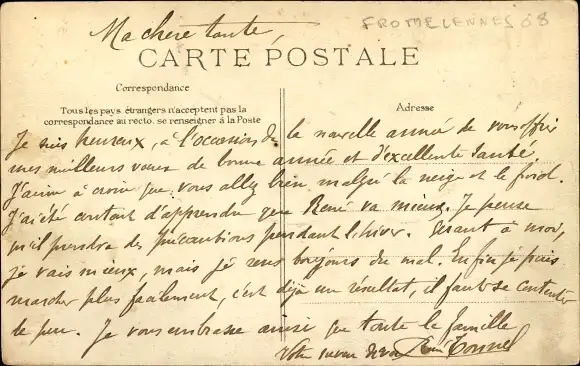 FROMELENNES 08
Ma chere tante,
CARTE POSTALE
Correspondance
Tous les pays étrangers n'acceptent pas la
correspondance au recto. se renseigner à la Poste
Adresse
Je suis heureux, à l'occasion de la nouvelle année de vous offrir
mes meilleurs vœux de bonne année et d'excellente santé.
J'aime à croire que vous allez bien, malgré la neige et le froid.
J'ai été content d'apprendre que René va mieux. Je pense
qu'il prendra des précautions pendant l'hiver. Quant à moi,
je vais mieux, mais je sens toujours du mal. Enfin je puis
marcher plus facilement, c'est déjà un résultat, il faut se contenter
de peu. Je vous embrasse ainsi que toute la famille
Votre neveu